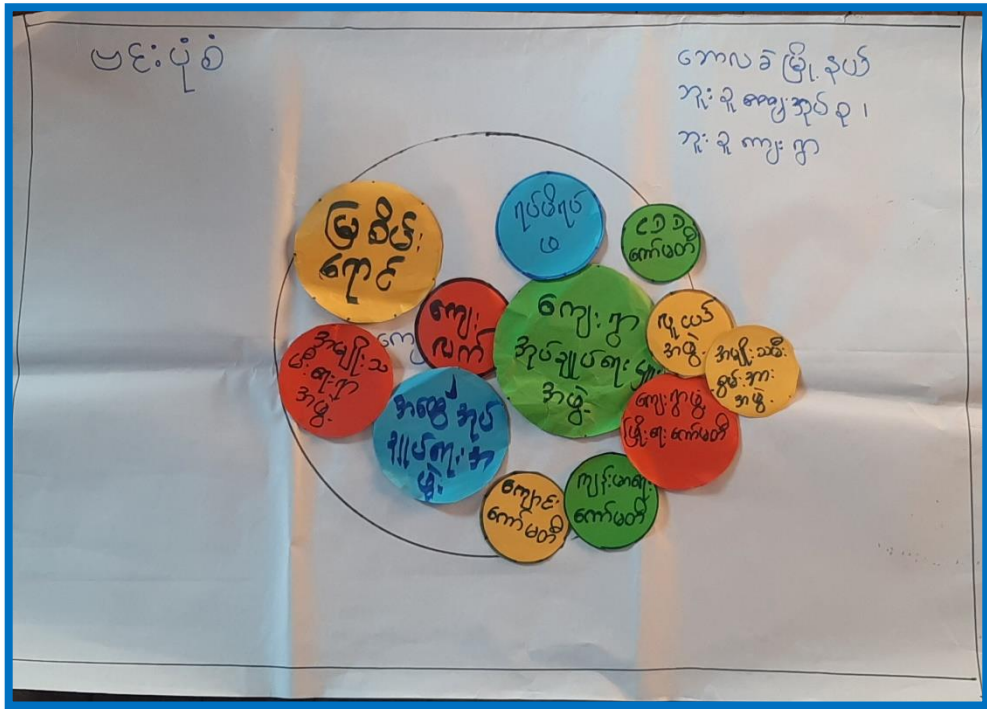 ဗင်းပုံစံ
ဘောလခဲမြို့နယ်
ဘူးခူကျေးအုပ်စု၊
ဘူးခူကျေးရွာ
မြစိမ်း
ရောင်
ရပ်မိရပ်
ဖ
ငဒဒ
ကော်မတီ
ကျေး
လက်
ကျေ
ကျေးရွာ
အုပ်ချုပ်ရေးမှူး
အဖွဲ့
လူငယ်
အဖွဲ့
အမျိုးသမီး
စွမ်းအား
အဖွဲ့
အမျိုးသ
မီးရေးရာ
အဖွဲ့
အထွေအုပ်
ချုပ်ရေးအ
ဖွဲ့
ကျေးရွာဖွံ့
ဖြိုးရေးကော်မတီ
ကျောင်း
ကော်မတီ
ကျန်းမာရေး
ကော်မတီ